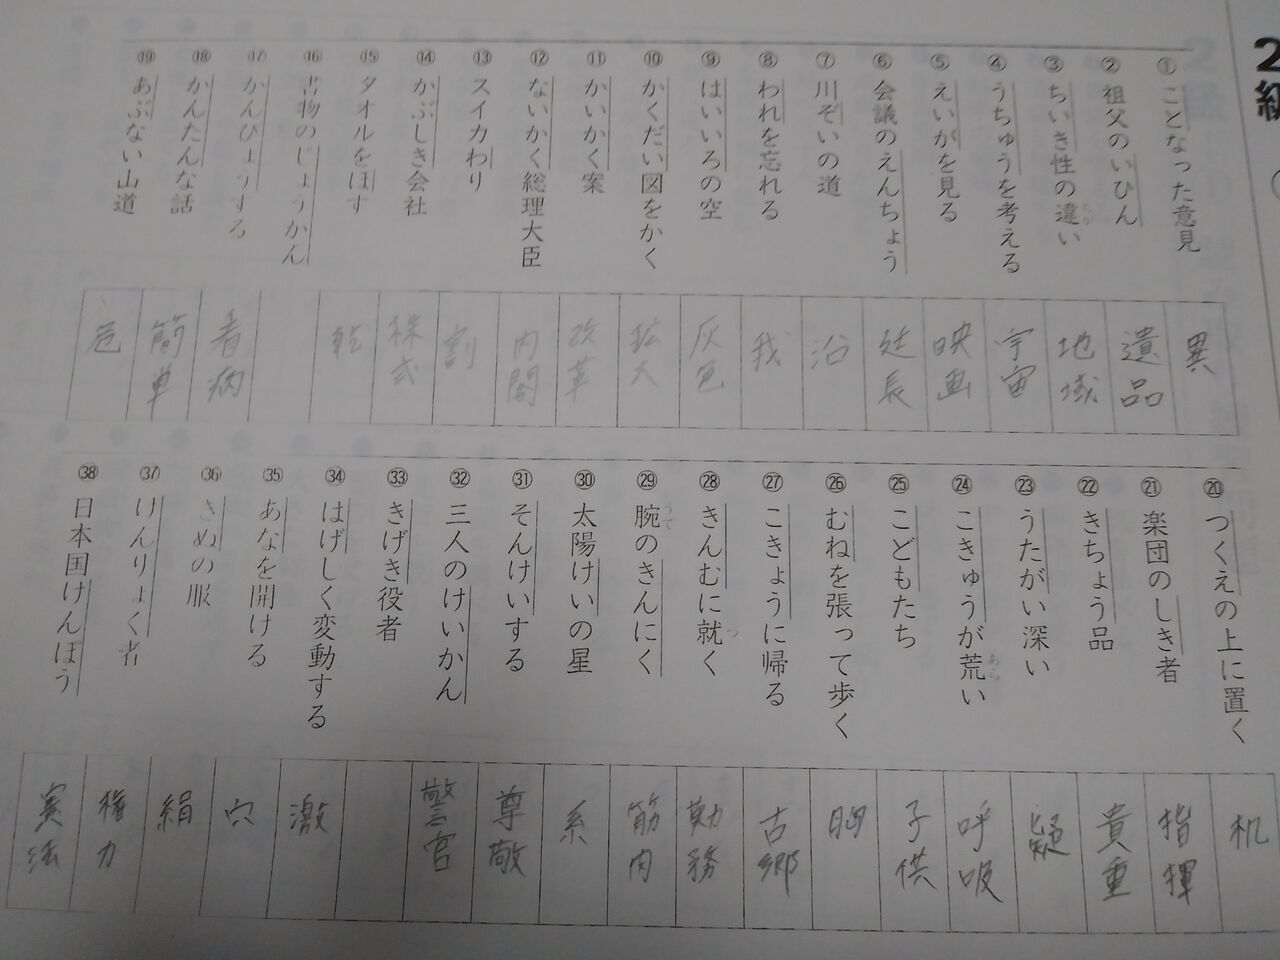 2級
① ことなった意見
② 祖父のいひん
③ ちいき性の違い
ちが
④ うちゅうを考える
⑤ えいがを見る
⑥ 会議のえんちょう
⑦ 川ぞいの道
⑧ われを忘れる
⑨ はいいろの空
⑩ かくだい図をかく
⑪ かいかく案
⑫ ないかく総理大臣
⑬ スイカわり
⑭ かぶしき会社
⑮ タオルをほす
⑯ 書物のじょうかん
⑰ かんびょうする
⑱ かんたんな話
⑲ あぶない山道
異
遺品
地域
宇宙
映画
延長
沿
我
灰色
拡大
改革
内閣
割
株式
乾
看病
簡単
危
⑳ つくえの上に置く
㉑ 楽団のしき者
㉒ きちょう品
㉓ うたがい深い
㉔ こきゅうが荒い
あら
㉕ こどもたち
㉖ むねを張って歩く
㉗ こきょうに帰る
㉘ きんむに就く
つ
㉙ 腕のきんにく
うで
㉚ 太陽けいの星
㉛ そんけいする
㉜ 三人のけいかん
㉝ きげき役者
㉞ はげしく変動する
㉟ あなを開ける
㊱ きぬの服
㊲ けんりょく者
㊳ 日本国けんぽう
机
指揮
貴重
疑
呼吸
子供
胸
古郷
勤務
筋肉
系
尊敬
警官
激
穴
絹
権力
憲法